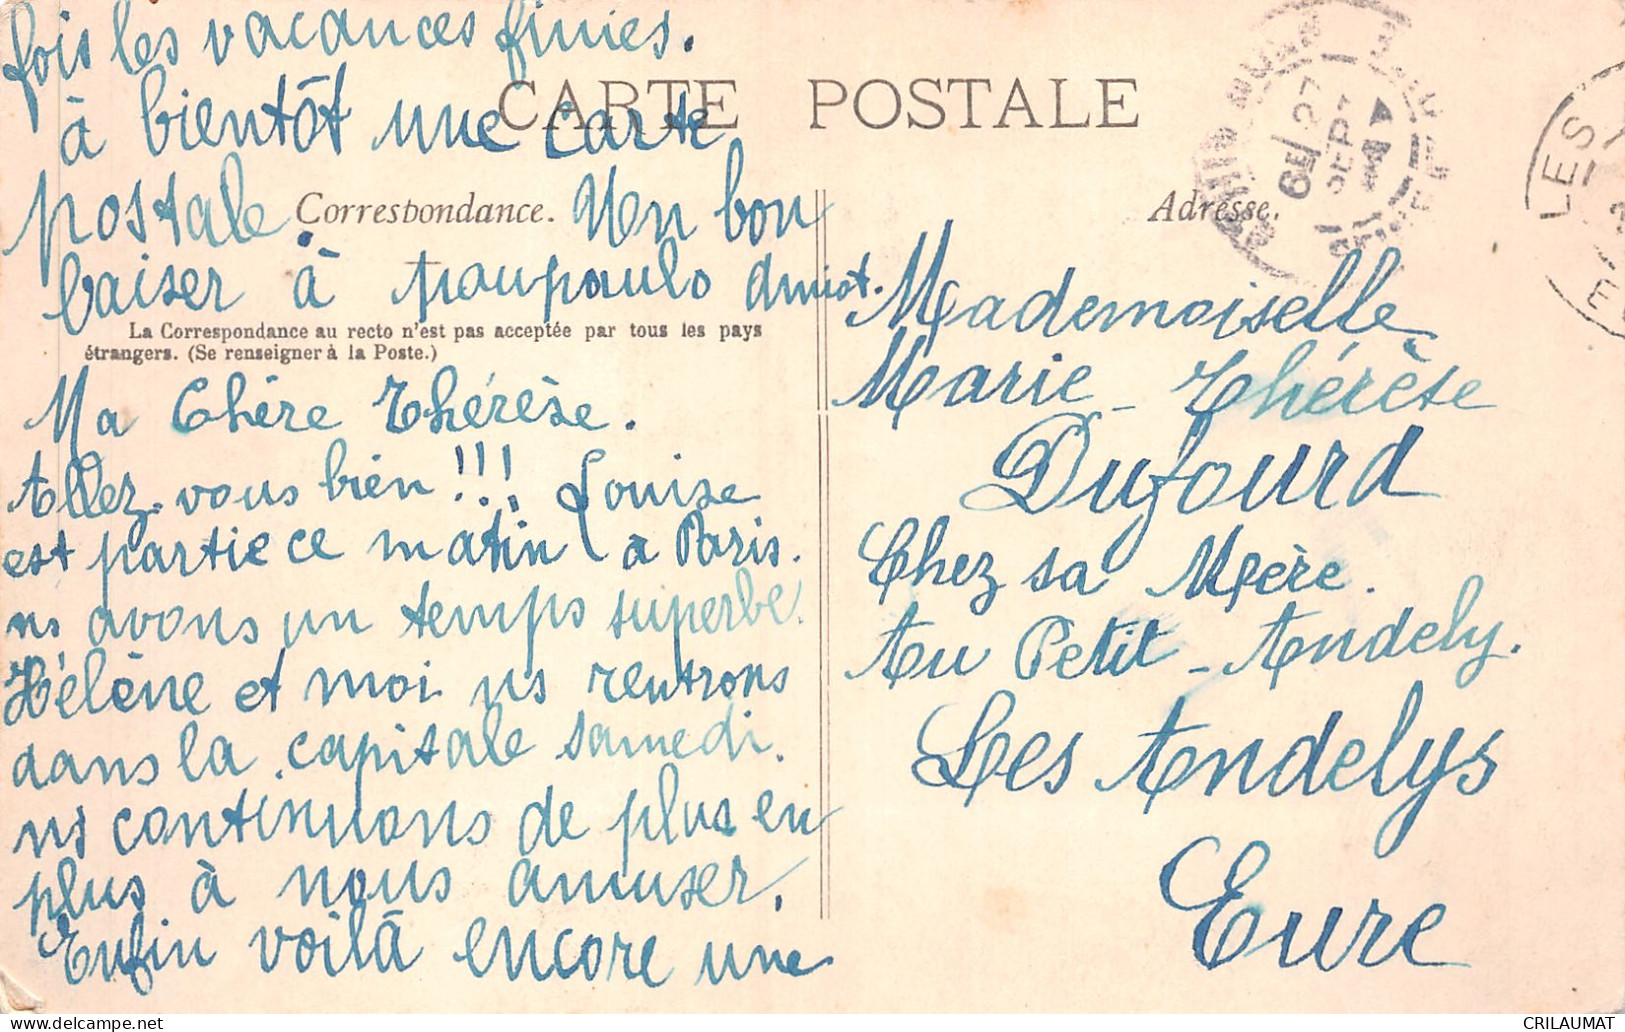 fois les vacances finies.
à bientôt une carte
postale. Un bon
baiser à poupaulo
CARTE POSTALE
Correspondance.
Adresse.
La Correspondance au recto n'est pas acceptée par tous les pays
étrangers. (Se renseigner à la Poste.)
Ma Chère Thérèse.
Allez-vous bien !!! Louise
est partie ce matin à Paris.
ns avons un temps superbe.
Hélène et moi ns rentrons
dans la capitale samedi.
ns continuons de plus en
plus à nous amuser.
Enfin voilà encore une
Mademoiselle
Marie-Thérèse
Dufourd
Chez sa Mère.
Au Petit-Andely.
Les Andelys
Eure
6E 27
SEPT
LES
CRILAUMAT